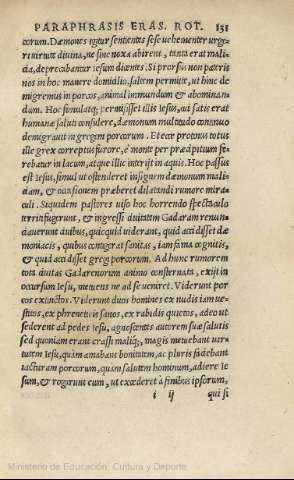 PARAPHRASIS ERAS. ROT. 131
eorum. Dæmones igitur sentientes sese uehementer urge-
ri uirtute diuina, ne sine noxa abirent, tanta erat mali-
cia, deprecabantur Iesum dicentes. Si prorsus non pateris
nos in hoc manere domicilio, saltem permitte, ut hinc de
migremus in porcos, animal immundum & abominan-
dum. Hoc simulatq; permisisset illis Iesus, ut satis erat
humanæ saluti consulere, dæmonum multitudo continuo
demigrauit in gregem porcorum. Et ecce protinus totus
ille grex correptus furore, è monte per præcipitium fe-
rebatur in lacum, atque illic interijt in aquis. Hoc passus
est Iesus, simul ut ostenderet insignem dæmonum mali-
ciam, & occasionem præberet dilatandi rumore mira-
culi. Siquidem pastores uiso hoc horrendo spectaculo
territi fugerunt, & ingressi ciuitatem Gadaram renun-
ciauerunt ciuibus, quicquid uiderant, quid accidisset dæ
moniacis, quibus contigerat sanitas, iam fama cognitis,
& quid accidisset gregi porcorum. Ad hunc rumorem
tota ciuitas Gadarenorum animo consternata, exijt in
occursum Iesu, metuens ne ad se ueniret. Viderunt por
cos extinctos. Viderunt duos homines ex nudis iam ue-
stitos, ex phreneticis sanos, ex rabidis quietos, adeo ut
sederent ad pedes Iesu, agnoscentes autorem suæ salutis
sed quoniam erant crassi maliq;, magis metuebant uir-
tutem Iesu, quàm amabant bonitatem, ac pluris faciebant
iacturam porcorum, quàm salutem hominum, adiere Ie
sum, & rogarunt eum, ut excederet à finibus ipsorum,
i ij qui si
Ministerio de Educación, Cultura y Deporte